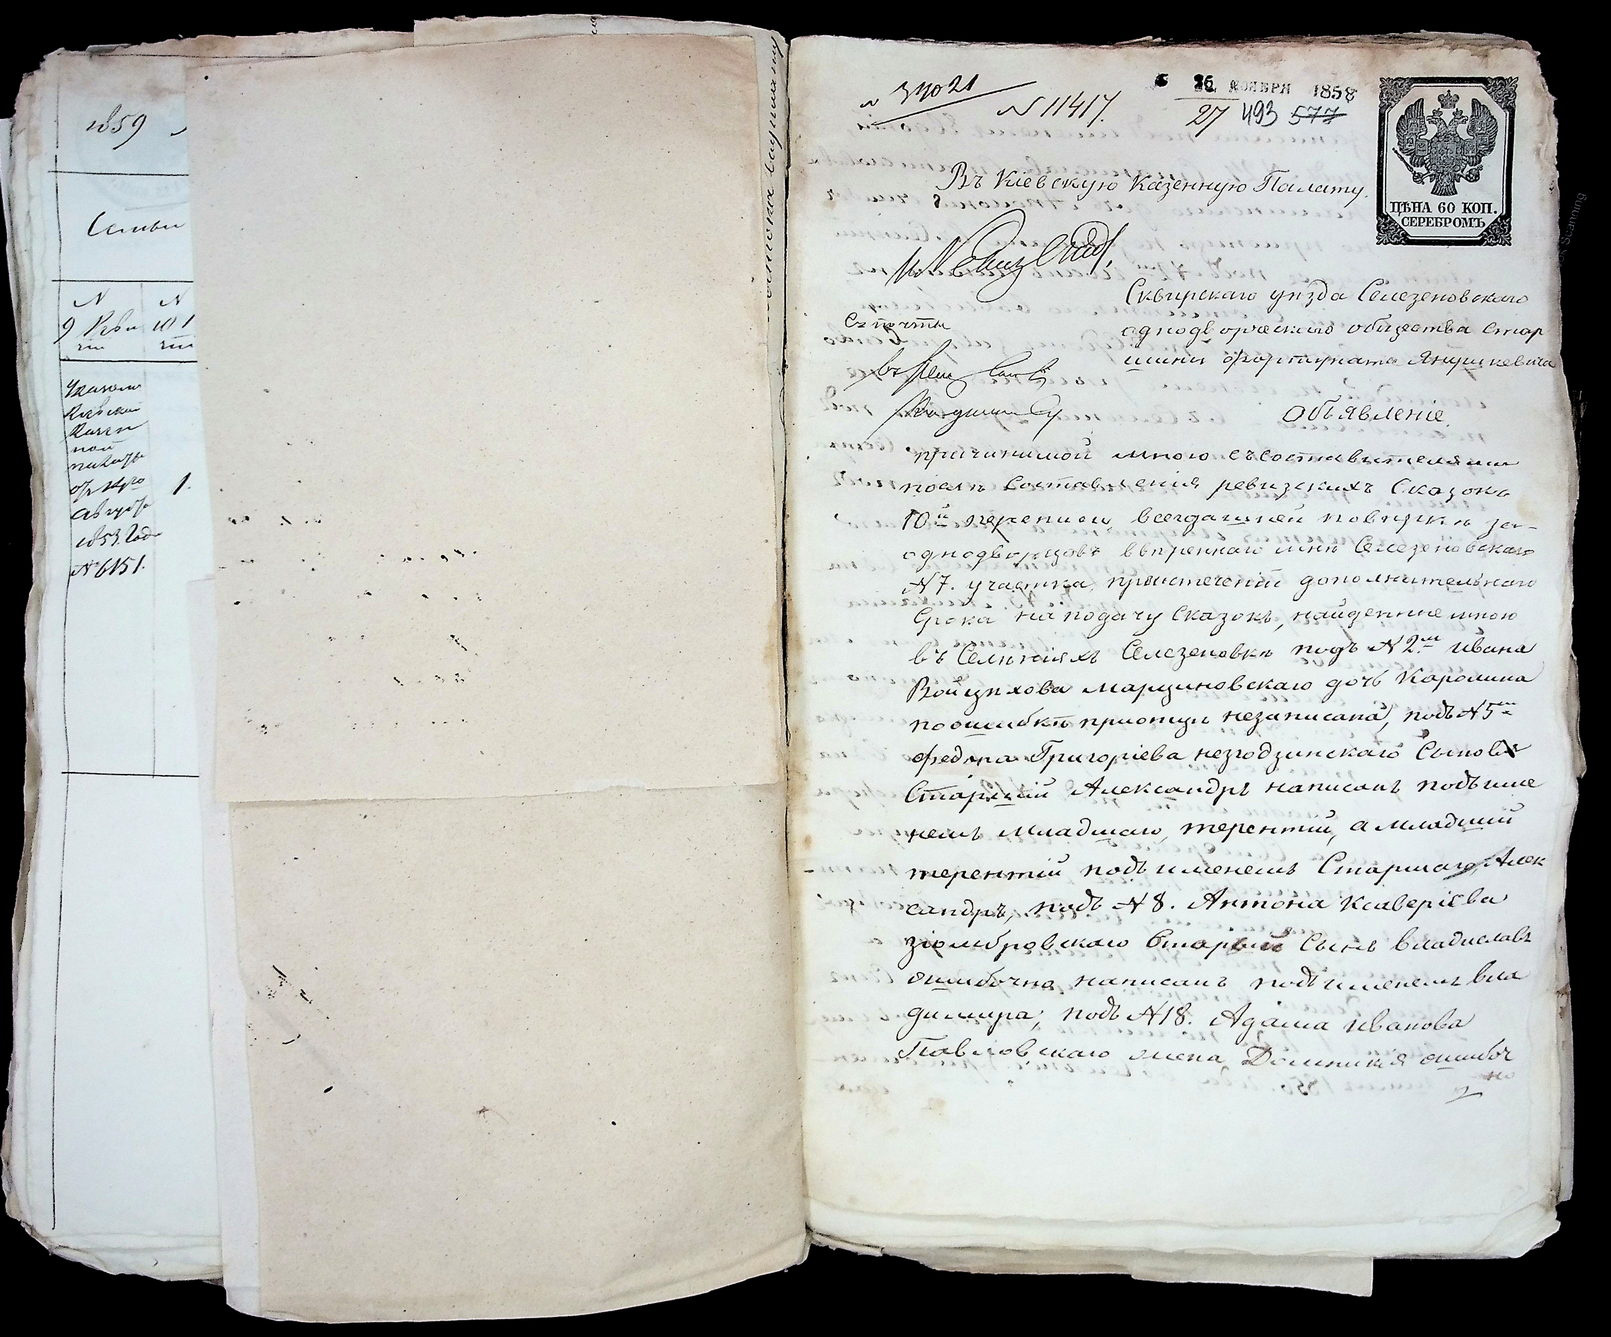 1859
Семьи
N
N
9 Реви
10
зіи
зіи
Указомъ
Кіевской
Казен
ной
палаты
отъ
Августа
1853 Года
N 6151.
1.
N 34021
N 11417.
26 НОЯБРЯ 1858
27 493 577
ЦѢНА 60 КОП.
СЕРЕБРОМЪ
Въ Кіевскую Казенную Палату.
Сквирскаго уѣзда Селезеновскаго
однодворческаго общества Стар
шины Фортуната Янушкевича
Съ почты
Объявленіе.
При чинимой мною съ составителями
послѣ Составленія ревизскихъ Сказокъ
10й переписи, всегдашней повѣрки за
однодворцовъ ввѣреннаго мнѣ Селезеновскаго
N 7. участка, при истеченіи дополнительнаго
Срока на подачу Сказокъ, найденные мною
въ Селеніяхъ Селезеновкѣ подъ N 2мъ Ивана
Войцѣхова Марциновскаго дочь Каролина
по ошибкѣ при отцѣ незаписана, подъ N 5мъ
Федора Григоріева незгодзинскаго Сыновя
Старшій Александръ написанъ подъ име
немъ младшаго, терентій, а младшій
терентій подъ именемъ Старшаго Алек
сандръ, подъ N 8. Антона Ксаверіева
зіомбровскаго Старшій Сынъ владиславъ
ошибочно написанъ подъ именемъ вла
димира, подъ N 18. Адама Иванова
Павловскаго жена Доминикія ошибоч
но